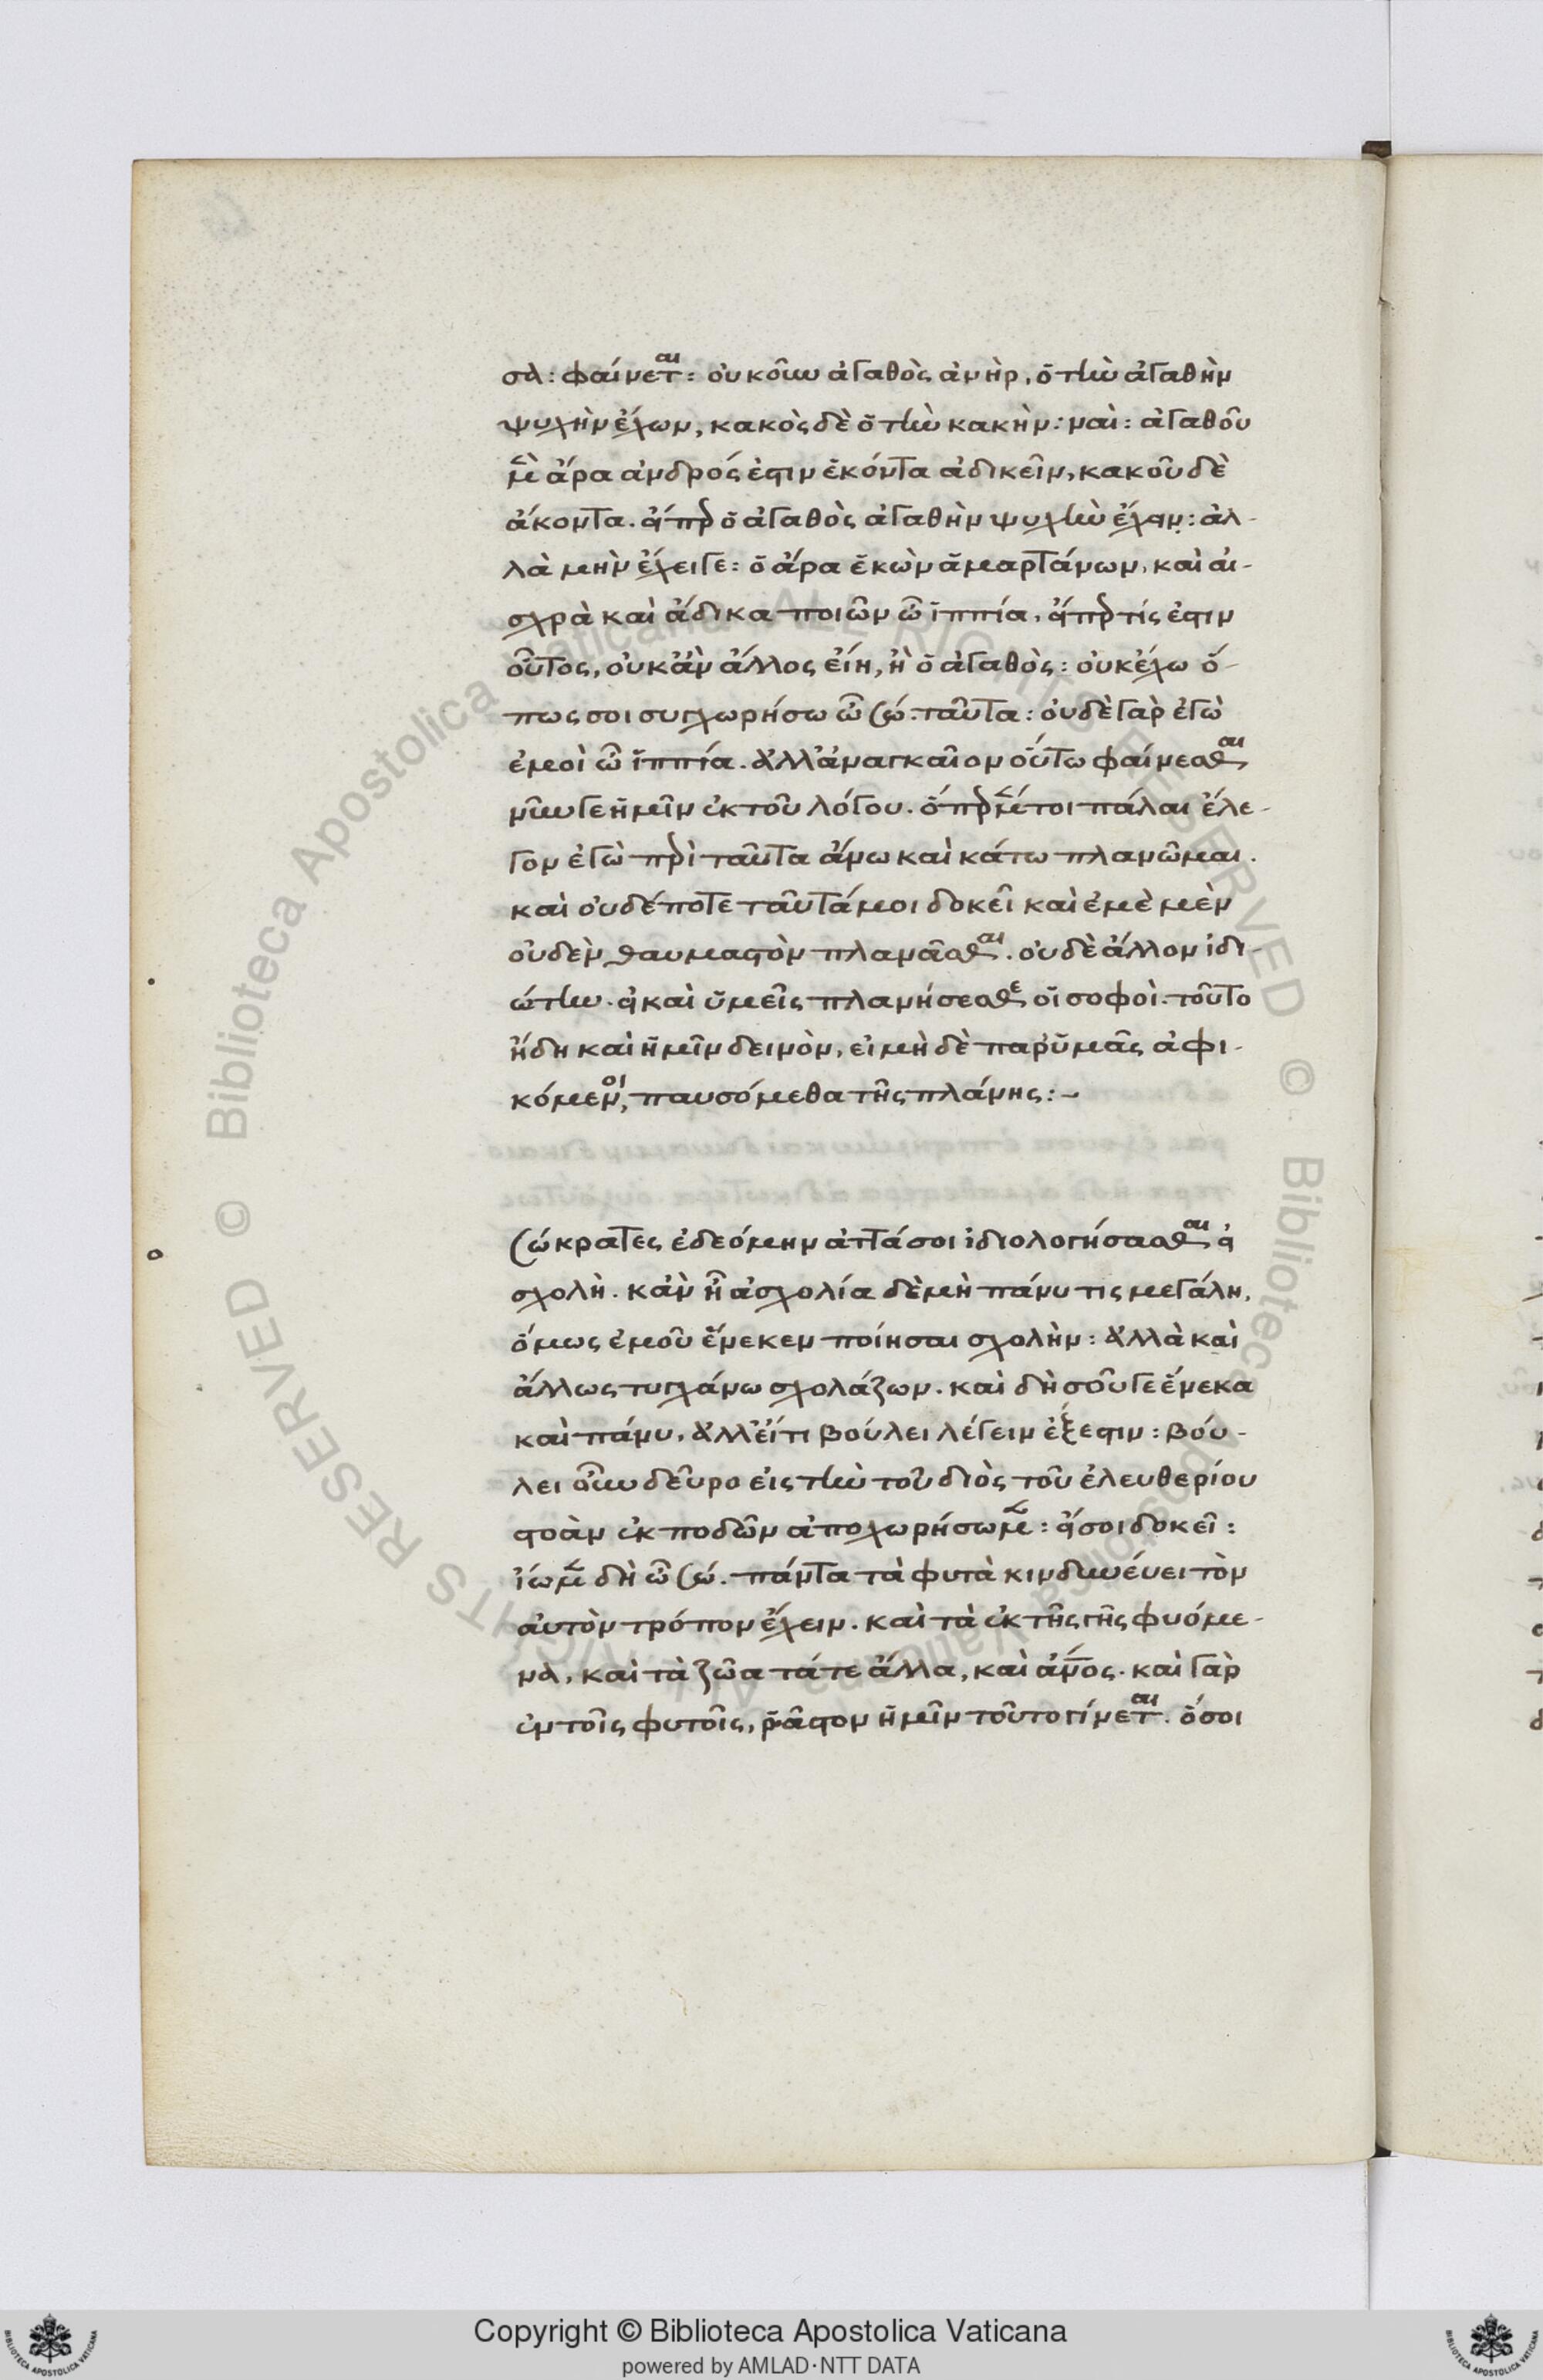 σα: φαίνεται: οὐκοῦν ἀγαθὸς ἀνὴρ, ὁ τὴν ἀγαθὴν
ψυχὴν ἔχων, κακὸς δὲ ὁ τὴν κακήν: ναί: ἀγαθοῦ
μὲν ἄρα ἀνδρός ἐστιν ἑκόντα ἀδικεῖν, κακοῦ δὲ
ἄκοντα. εἴπερ ὁ ἀγαθὸς ἀγαθὴν ψυχὴν ἔχειν: ἀλ-
λὰ μὴν ἔχει γε: ὁ ἄρα ἑκὼν ἁμαρτάνων, καὶ αἰ-
σχρὰ καὶ ἄδικα ποιῶν ὦ ἱππία, εἴπερ τίς ἐστιν
οὗτος, οὐκ ἂν ἄλλος εἴη, ἢ ὁ ἀγαθὸς: οὐκ ἔχω ὅ-
πως σοι συγχωρήσω ὦ Σώ. ταῦτα: οὐδὲ γὰρ ἐγὼ
ἐμοὶ ὦ ἱππία. ἀλλ' ἀναγκαῖον οὕτω φαίνεσθαι
νῦν γε ἡμῖν ἐκ τοῦ λόγου. ὅπερ μέντοι πάλαι ἔλε-
γον ἐγὼ περὶ ταῦτα ἄνω καὶ κάτω πλανῶμαι.
καὶ οὐδέποτε ταὐτά μοι δοκεῖ καὶ ἐμὲ μὲν
οὐδὲν θαυμαστὸν πλανᾶσθαι. οὐδὲ ἄλλον ἰδι-
ώτην. εἰ καὶ ὑμεῖς πλανήσεσθε οἱ σοφοὶ. τοῦτο
ἤδη καὶ ἡμῖν δεινὸν, εἰ μὴ δὲ παρ' ὑμᾶς ἀφι-
κόμενοι, παυσόμεθα τῆς πλάνης:~
Σώκρατες ἐδεόμην ἄττά σοι ἰδιολογήσασθαι εἰ
σχολὴ. κἂν ᾖ ἀσχολία δὲ μὴ πάνυ τις μεγάλη,
ὅμως ἐμοῦ ἕνεκεν ποίησαι σχολὴν: ἀλλὰ καὶ
ἄλλως τυγχάνω σχολάζων. καὶ δὴ σοῦ γε ἕνεκα
καὶ πάνυ, ἀλλ' εἴ τι βούλει λέγειν ἔξεστιν: βού-
λει οὖν δεῦρο εἰς τὴν τοῦ διὸς τοῦ ἐλευθερίου
στοὰν ἐκ ποδῶν ἀποχωρήσωμεν: εἴ σοι δοκεῖ:
ἴωμεν δὴ ὦ Σώ. πάντα τὰ φυτὰ κινδυνεύει τὸν
αὐτὸν τρόπον ἔχειν. καὶ τὰ ἐκ τῆς γῆς φυόμε-
να, καὶ τὰ ζῶα τά τε ἄλλα, καὶ ἄνος. καὶ γὰρ
ἐν τοῖς φυτοῖς, ῥᾶστον ἡμῖν τοῦτο γίνεται. ὅσοι
Copyright © Biblioteca Apostolica Vaticana
powered by AMLAD·NTT DATA